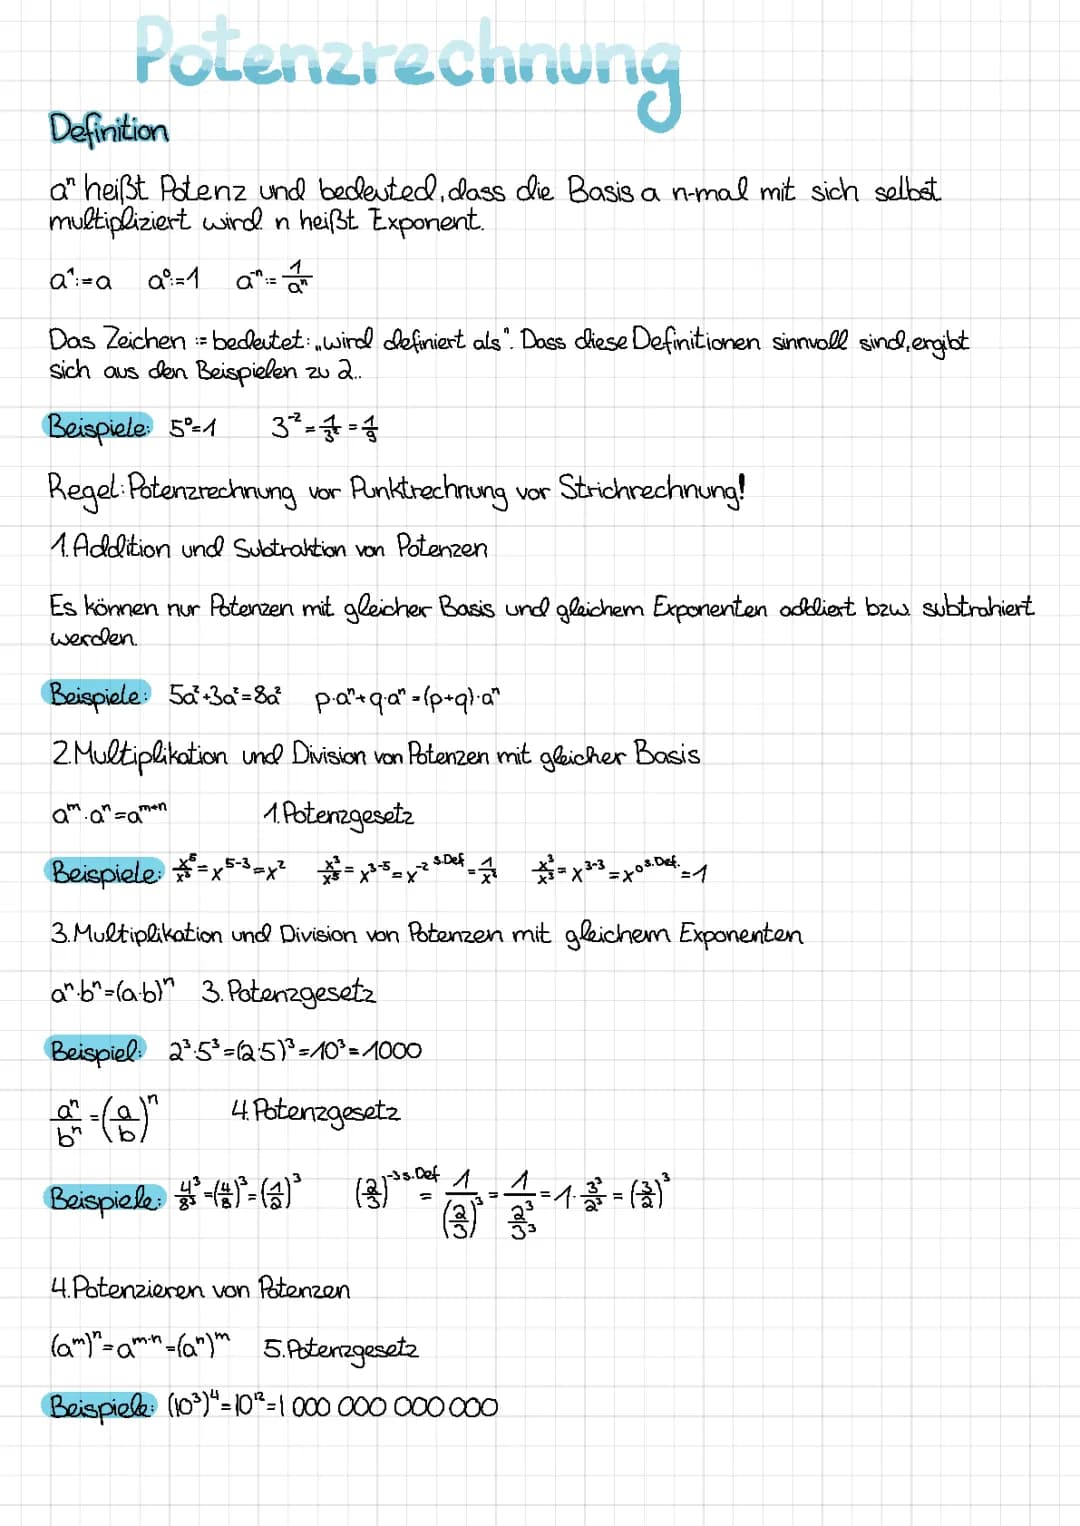 Potenzrechnung
Definition
aⁿ heißt Potenz und bedeuted, dass die Basis a n-mal mit sich selbst
multipliziert wird. n heißt Exponent.
a¹:=a a⁰:=1 a⁻ⁿ:= 1/aⁿ
Das Zeichen := bedeutet: „wird definiert als". Dass diese Definitionen sinnvoll sind, ergibt
sich aus den Beispielen zu 2..
Beispiele: 5⁰=1 3⁻²=1/3²=1/9
Regel: Potenzrechnung vor Punktrechnung vor Strichrechnung!
1. Addition und Subtraktion von Potenzen
Es können nur Potenzen mit gleicher Basis und gleichem Exponenten addiert bzw. subtrahiert
werden.
Beispiele: 5a²+3a²=8a² p·aⁿ+q·aⁿ=(p+q)·aⁿ
2. Multiplikation und Division von Potenzen mit gleicher Basis
aᵐ·aⁿ=aᵐ⁺ⁿ 1. Potenzgesetz
Beispiele: x⁵/x³=x⁵⁻³=x² x³/x⁵=x³⁻⁵=x⁻² s.Def. =1/x² x³/x³=x³⁻³=x⁰ s.Def. =1
3. Multiplikation und Division von Potenzen mit gleichem Exponenten
aⁿ·bⁿ=(a·b)ⁿ 3. Potenzgesetz
Beispiel: 2³·5³=(2·5)³=10³=1000
aⁿ/bⁿ=(a/b)ⁿ 4. Potenzgesetz
Beispiele: 4³/8³=(4/8)³=(1/2)³ (2/3)⁻³ s.Def = 1/(2/3)³ = 1/(2³/3³) =1·3³/2³=(3/2)³
4. Potenzieren von Potenzen
(aᵐ)ⁿ=aᵐ·ⁿ=(aⁿ)ᵐ 5. Potenzgesetz
Beispiele: (10³)⁴=10¹²=1 000 000 000 000